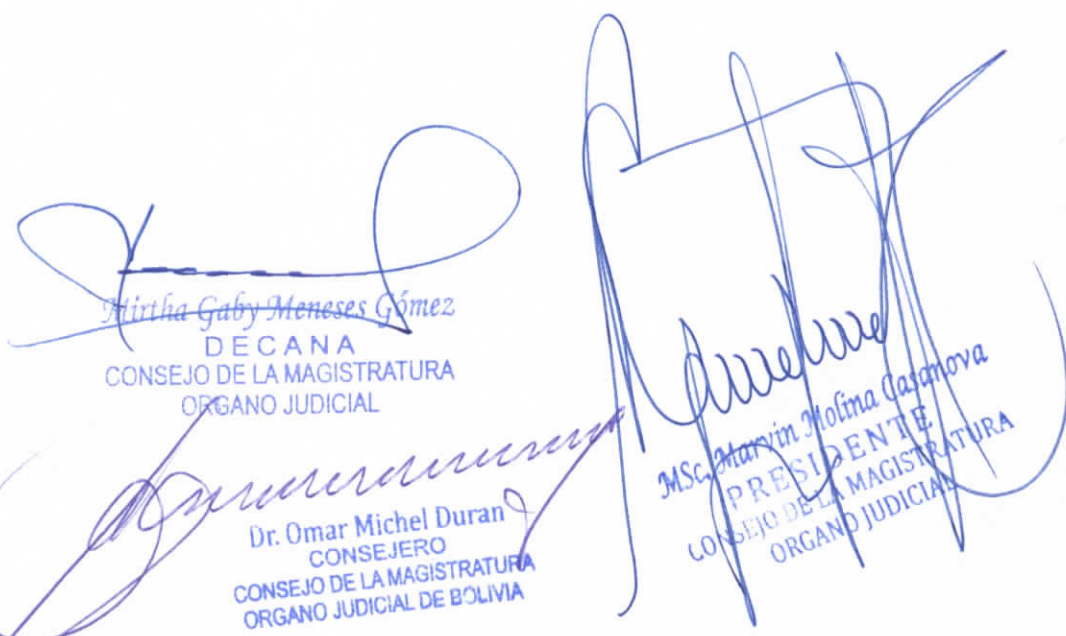 Mirtha Gaby Meneses Gómez
DECANA
CONSEJO DE LA MAGISTRATURA
ORGANO JUDICIAL
Dr. Omar Michel Duran
CONSEJERO
CONSEJO DE LA MAGISTRATURA
ORGANO JUDICIAL DE BOLIVIA
MSc. Marvin Molina Casanova
PRESIDENTE
CONSEJO DE LA MAGISTRATURA
ORGANO JUDICIAL